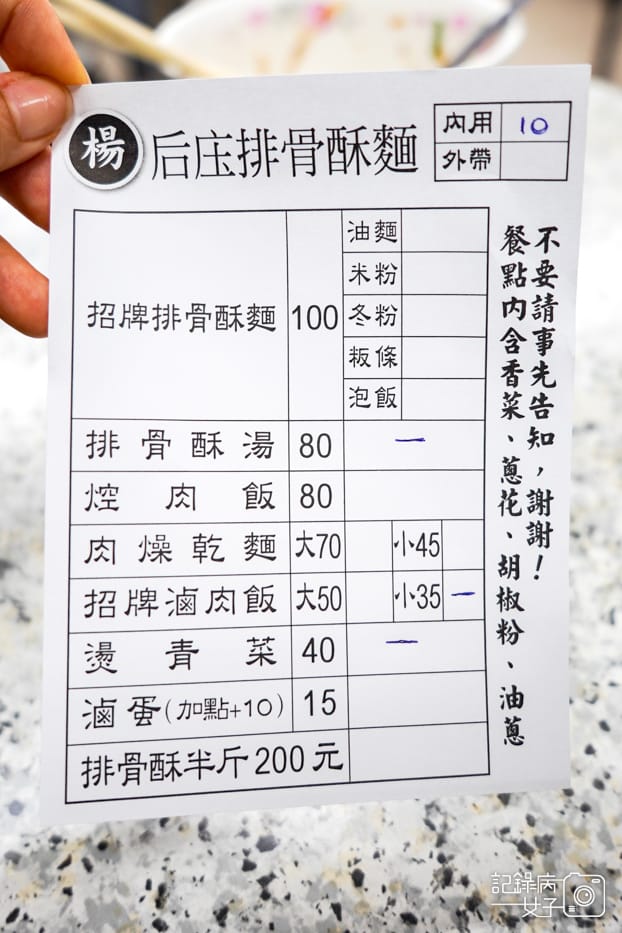 楊 后庄排骨酥麵
內用 10
外帶
招牌排骨酥麵 100
油麵
米粉
冬粉
粄條
泡飯
排骨酥湯 80 一
焢肉飯 80
肉燥乾麵 大70 小45
招牌滷肉飯 大50 小35 一
燙青菜 40 一
滷蛋(加點+10) 15
排骨酥半斤200元
不要請事先告知，謝謝！
餐點內含香菜、蔥花、胡椒粉、油蔥
記錄病女子